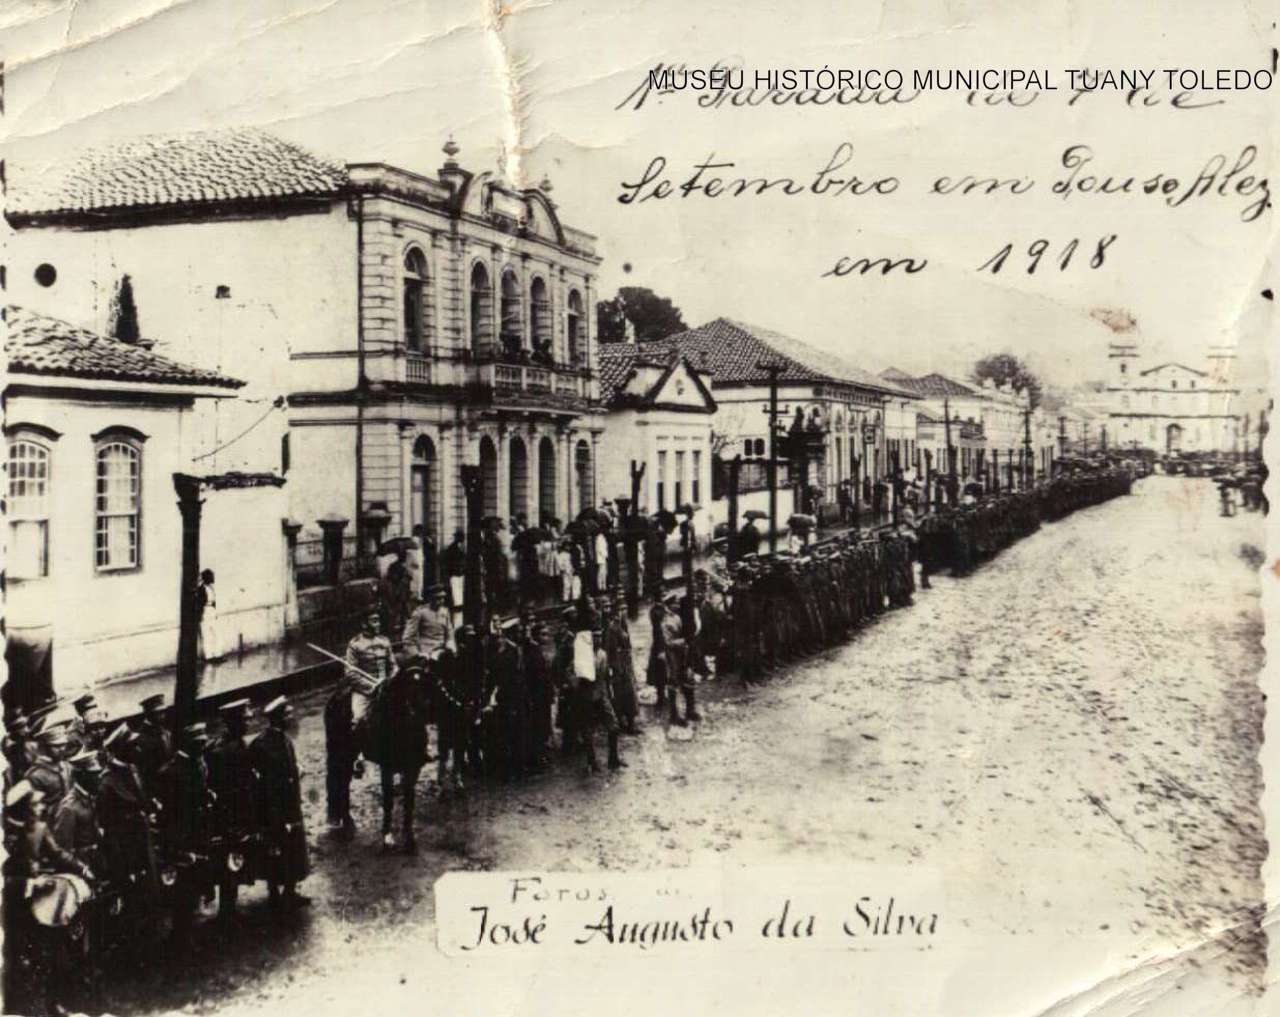 MUSEU HISTÓRICO MUNICIPAL TUANY TOLEDO
1ª Parada de 7 de
Setembro em Pouso Aleg
em 1918
Fotos de
José Augusto da Silva